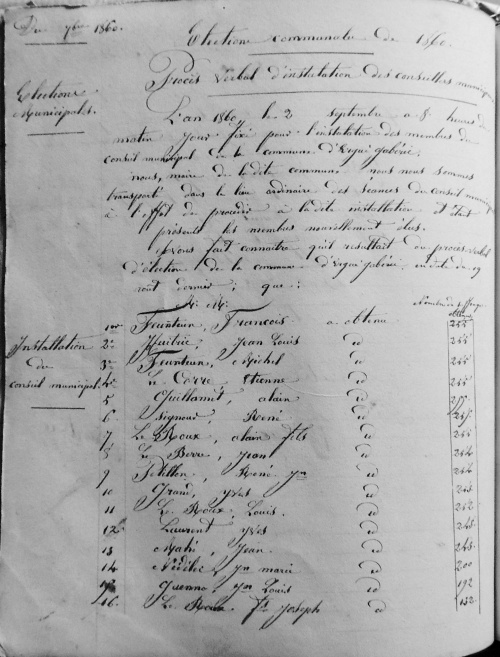 Du 7bre 1860.
Election communale de 1860.
Procès verbal d'instalation des conseillers municip
Elections
Municipales.
L'an 1860, le 2 septembre a 8 heures du
matin jour fixé pour l'installation des membres du
conseil municipal de la commune d'Ergué gabéric,
nous, maire de la dite commune nous nous sommes
transporté dans le lieu ordinaire des séances du conseil municip
à l'effet de procéder à la dite installation et étant
présents les membres nouvellement élus.
avons fait connaitre qu'il résultait du procès-verbal
d'élection de la commune d'Ergué gabéric, en date du 19
aout dernier, que :
M. M.
Nombre de suffrages
obtenus
Installation
du
conseil municipal.
1er Feunteun, François a obtenu 255
2e Jean Louis id 255
3e Feunteun, Michel id 255
4e Le Corre, Etienne id 255
5 Guillamet, alain id
6 Signour, René id
7 Le Roux, alain fils id 255
8 Le Berre, Jean id 254
9 Pétillon, René jn id 254
10 Grand, yves id
11 Le Roux, Louis. id 252
12 Laurent yves id 248
13 Mahé, Jean. id 248
14 Nédélec, jn marie id 200
15 Guenno, jn Louis id 192
16. Le Roux fs joseph id 132